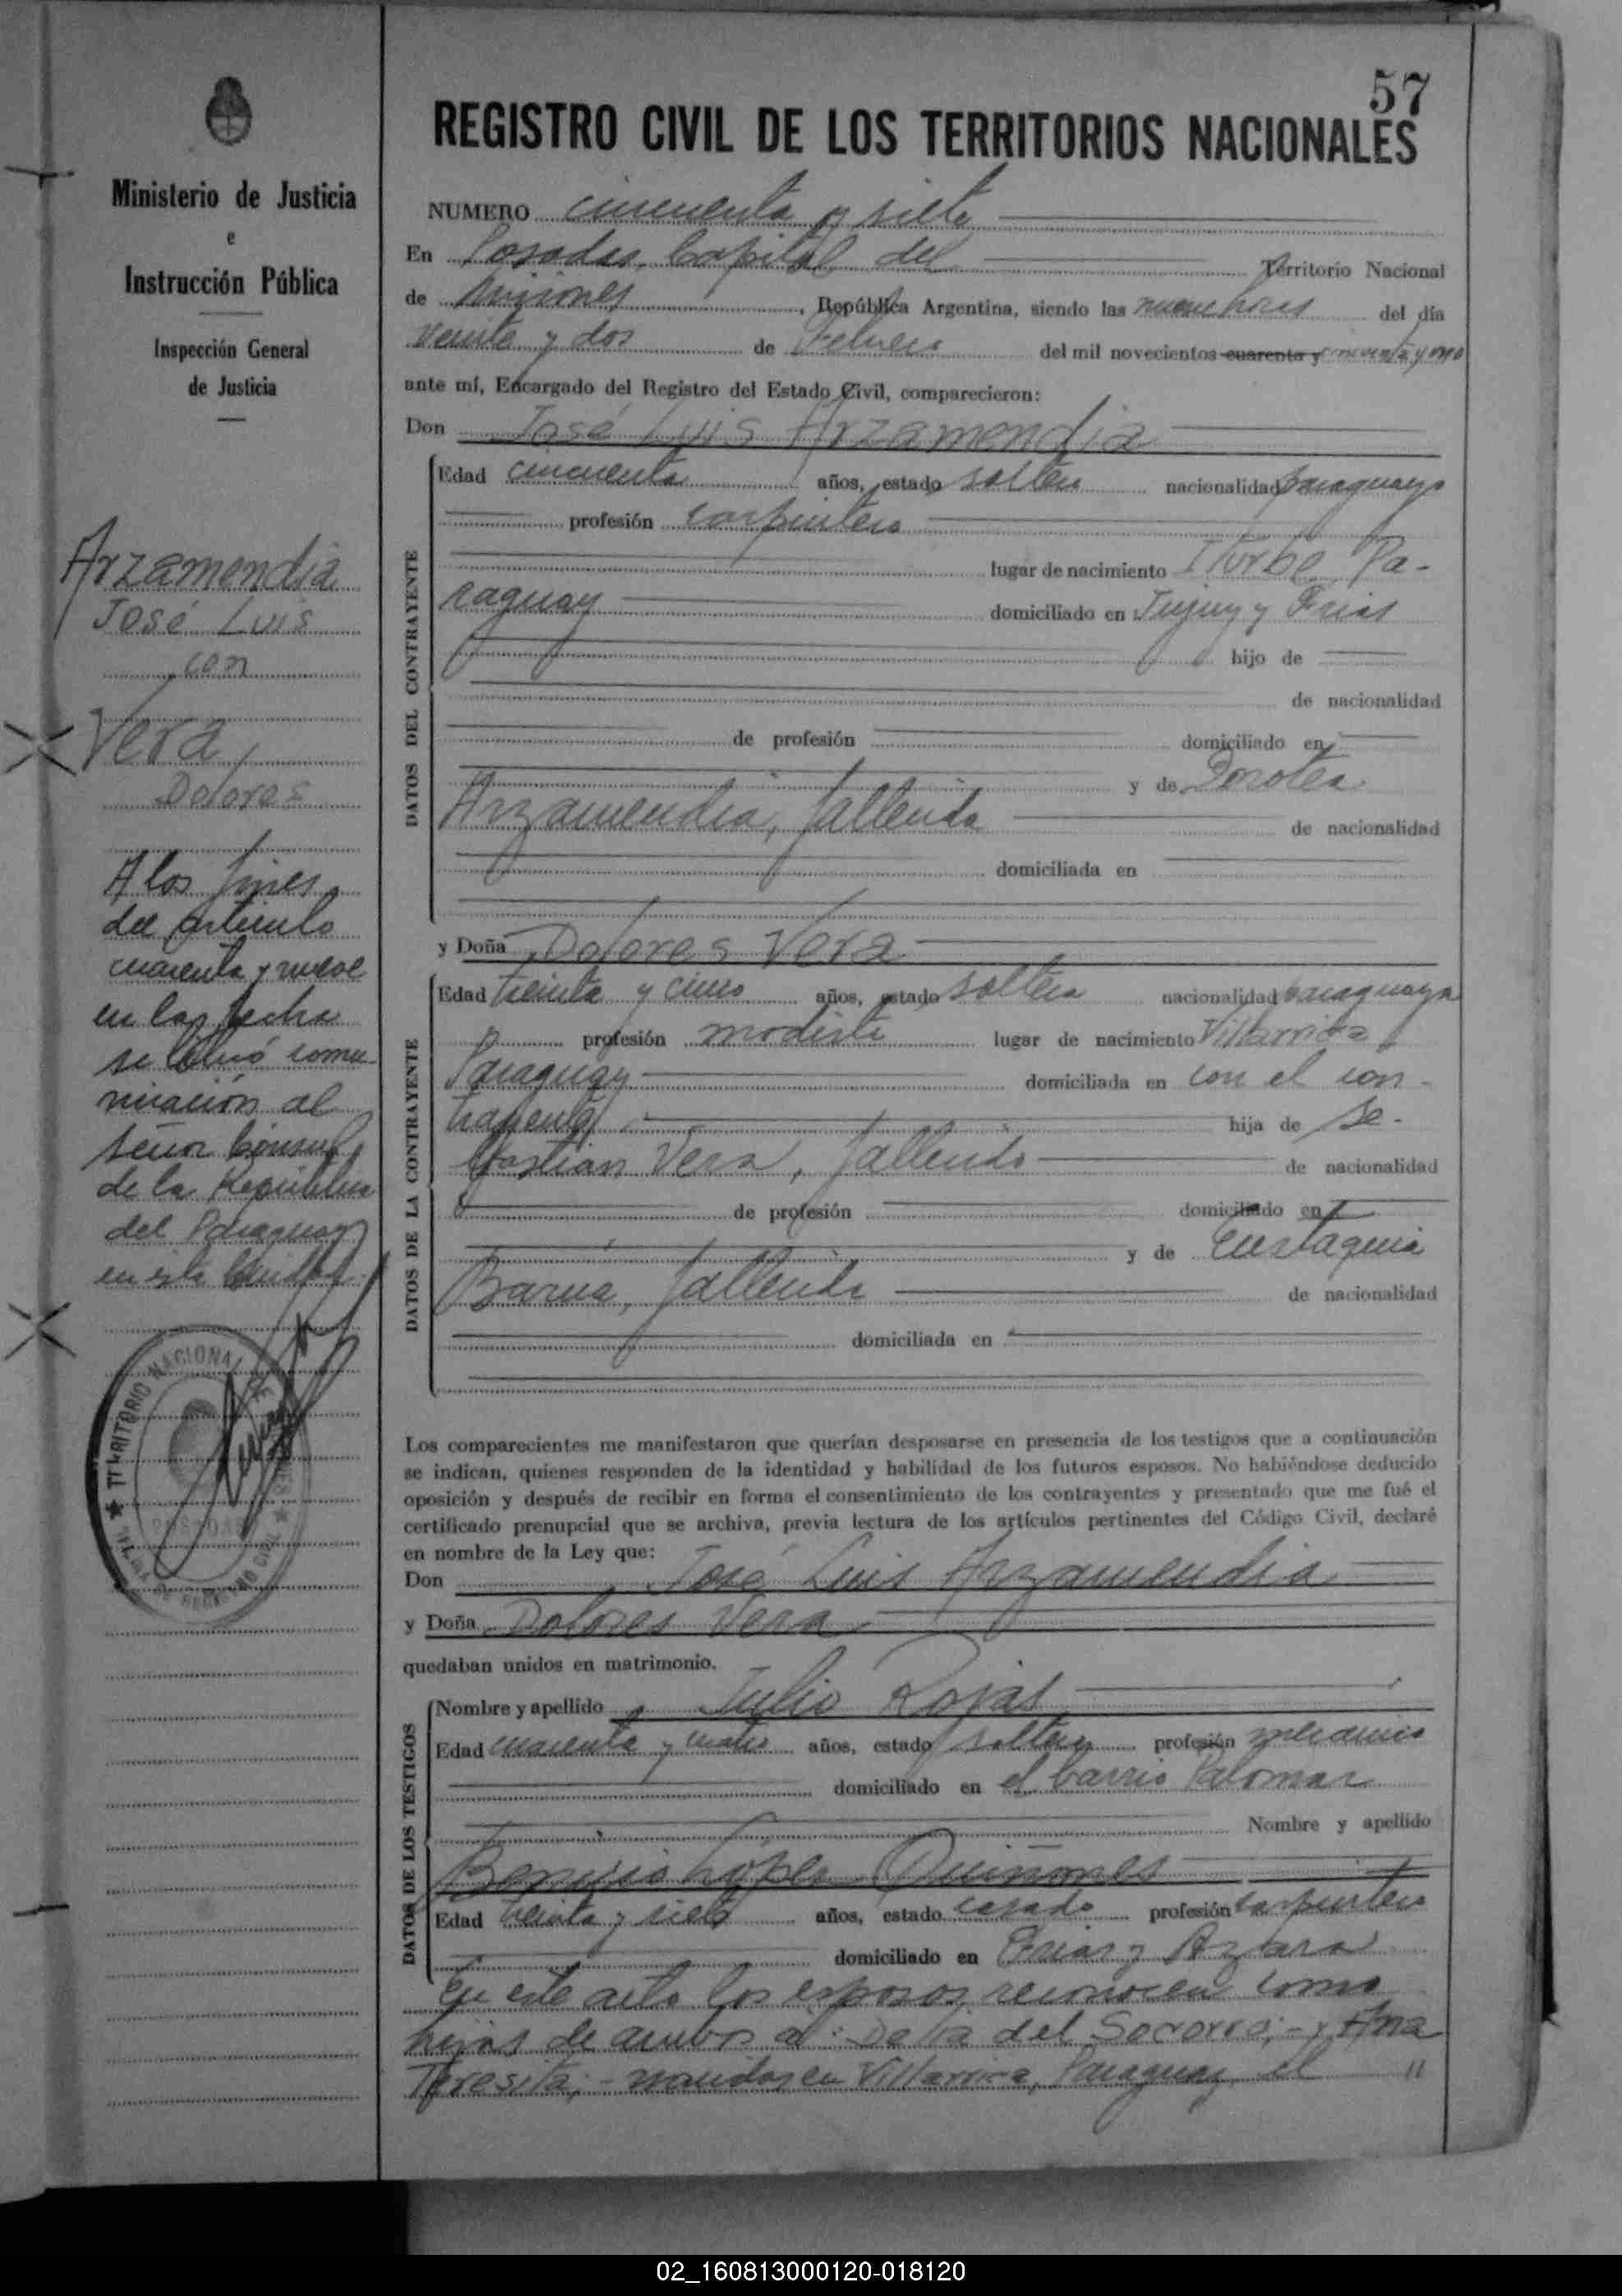 57
REGISTRO CIVIL DE LOS TERRITORIOS NACIONALES
Ministerio de Justicia
e
Instrucción Pública
Inspección General
de Justicia
Arzamendia
José Luis
con
Vera,
Dolores
A los fines
del artículo
cuarenta y nueve
en la fecha
se libró comu-
nicación al
señor Cónsul
de la República
del Paraguay
en esta Ciudad.
TERRITORIO NACIONAL DE
POSADAS
REGISTRO CIVIL
NUMERO cincuenta y siete
En Posadas, Capital del Territorio Nacional
de Misiones, República Argentina, siendo las nueve horas del día
veinte y dos de Febrero del mil novecientos cuarenta y cincuenta y uno
ante mí, Encargado del Registro del Estado Civil, comparecieron:
Don José Luis Arzamendia
DATOS DEL CONTRAYENTE
Edad cincuenta años, estado soltero nacionalidad paraguayo
profesión carpintero
lugar de nacimiento Iturbe, Pa-
raguay domiciliado en Jujuy y Frias
hijo de
de nacionalidad
de profesión domiciliado en
y de Dorotea
Arzamendia, fallecida de nacionalidad
domiciliada en
y Doña Dolores Vera
DATOS DE LA CONTRAYENTE
Edad treinta y cinco años, estado soltera nacionalidad paraguaya
profesión modista lugar de nacimiento Villarrica
Paraguay domiciliada en con el con-
trayente, hija de Se-
bastian Vera, fallecido de nacionalidad
de profesión domiciliado en
y de Eustaquia
Barúa, fallecida de nacionalidad
domiciliada en
Los comparecientes me manifestaron que querían desposarse en presencia de los testigos que a continuación
se indican, quienes responden de la identidad y habilidad de los futuros esposos. No habiéndose deducido
oposición y después de recibir en forma el consentimiento de los contrayentes y presentado que me fué el
certificado prenupcial que se archiva, previa lectura de los artículos pertinentes del Código Civil, declaré
en nombre de la Ley que:
Don José Luis Arzamendia
y Doña Dolores Vera
quedaban unidos en matrimonio.
DATOS DE LOS TESTIGOS
Nombre y apellido Julio Rojas
Edad cuarenta y cuatro años, estado soltero profesión mecánico
domiciliado en el barrio Palomar
Nombre y apellido
Benicio López Quiñones
Edad treinta y siete años, estado casado profesión carpintero
domiciliado en Frias y Azara
En este acto los esposos reconocen como
hijas de ambos a: Delia del Socorro; - y Ana
Teresita; - nacidas en Villarrica, Paraguay, el "
02_160813000120-018120